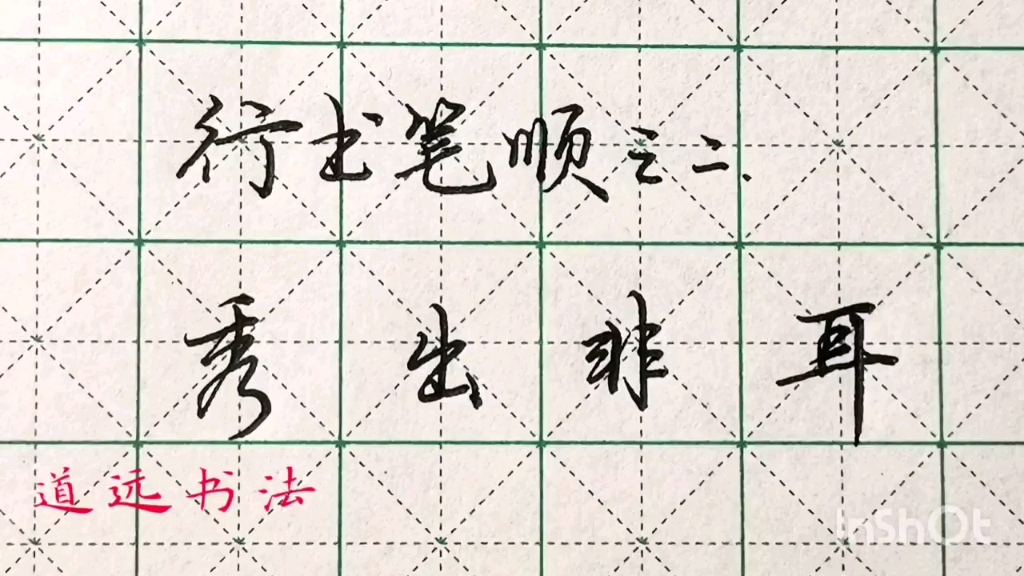 行书笔顺之二.
秀出非耳
道远书法
InShOt